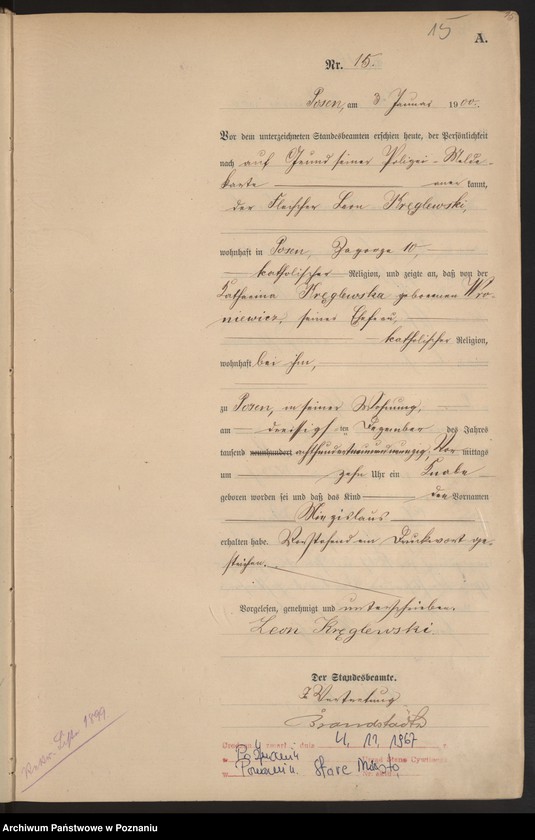 15
A.
Nr. 15.
Posen, am 3. Januar 1900.
Vor dem unterzeichneten Standesbeamten erschien heute, der Persönlichkeit
nach auf Grund seiner Polizei-Melde-
karte anerkannt,
der Fleischer Leon Kręglewski,
wohnhaft in Posen, Zagorze 10,
katholischer Religion, und zeigte an, daß von der
Katharina Kręglewska geborenen Wro-
niewicz, seiner Ehefrau,
katholischer Religion,
wohnhaft bei ihm,
zu Posen, in seiner Wohnung,
am dreißigsten Dezember des Jahres
tausend neunhundert achthundertneunundneunzig, Vormittags
um zehn Uhr ein Knabe
geboren worden sei und daß das Kind den Vornamen
erhalten habe. Vorstehend ein Druckwort ge-
strichen.
Vorgelesen, genehmigt und unterschrieben.
Leon Kręglewski
Der Standesbeamte.
In Vertretung
Brandstädter
Zmarł dnia 4. 11. 1967
Poznań
Stare Miasto
1899
Archiwum Państwowe w Poznaniu